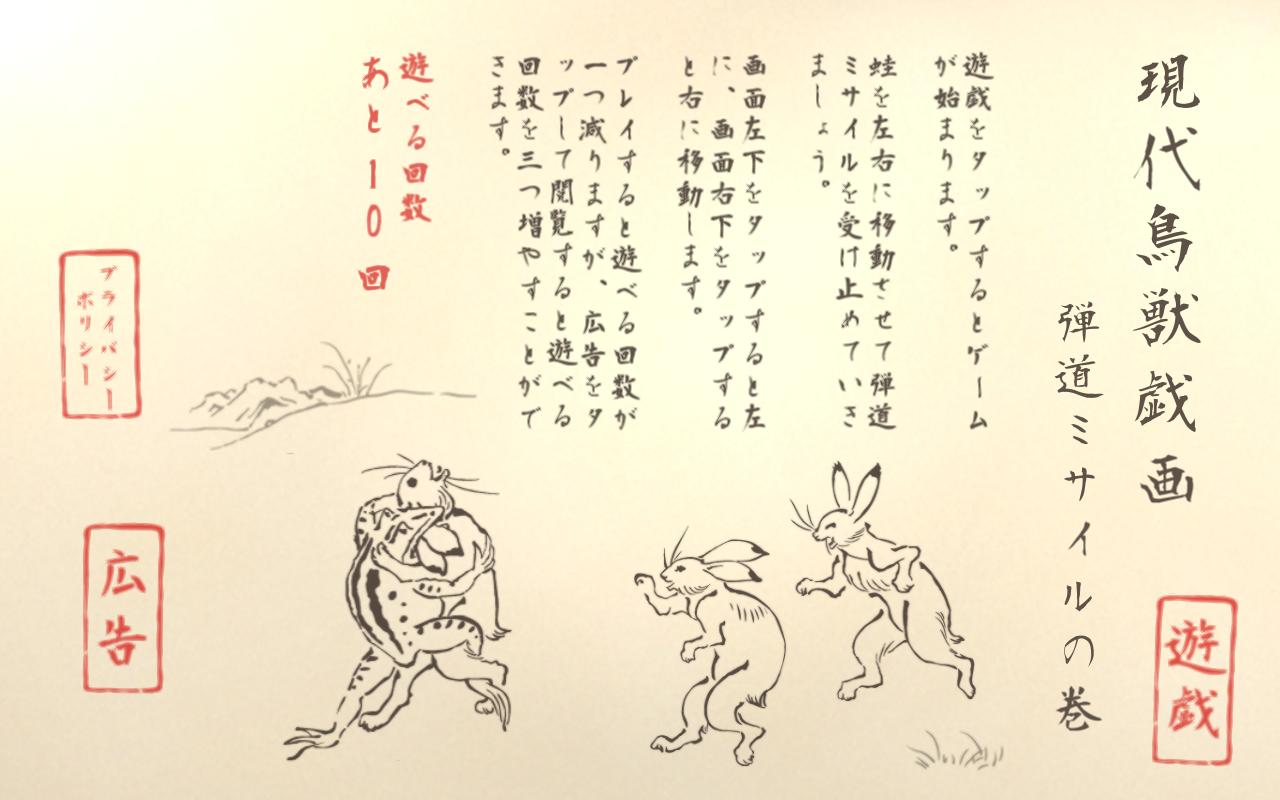 現代鳥獣戯画
弾道ミサイルの巻
遊戯
遊戯をタップするとゲーム
が始まります。
蛙を左右に移動させて弾道
ミサイルを受け止めていき
ましょう。
画面左下をタップすると左
に、画面右下をタップする
と右に移動します。
プレイすると遊べる回数が
一つ減りますが、広告をタ
ップして閲覧すると遊べる
回数を三つ増やすことがで
きます。
遊べる回数
あと10回
プライバシー
ポリシー
広告